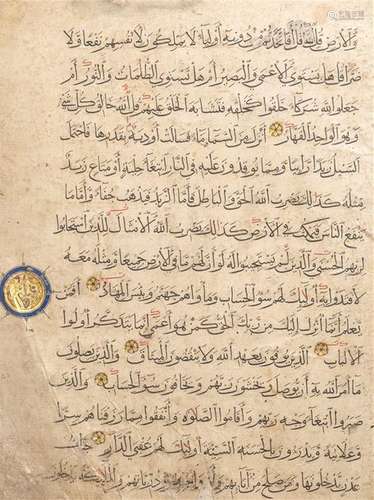 والارض قل الله قل افاتخذتم من دونه اوليا لا يملكون لانفسهم نفعا ولا
ضرا قل هل يستوى الاعمى والبصير ام هل تستوى الظلمات والنور ام
جعلوا لله شركا خلقوا كخلقه فتشابه الخلق عليهم قل الله خالق كل شى
وهو الواحد القهار انزل من السما ما فسالت اودية بقدرها فاحتمل
السيل زبدا رابيا ومما توقدون عليه فى النار ابتغا حلية او متاع زبد
مثله كذلك يضرب الله الحق والباطل فاما الزبد فيذهب جفا واما ما
ينفع الناس فيمكث فى الارض كذلك يضرب الله الامثال للذين استجابوا
لربهم الحسنى والذين لم يستجيبوا له لو ان لهم ما فى الارض جميعا ومثله معه
لافتدوا به اوليك لهم سو الحساب وماواهم جهنم وبيس المهاد افمن
يعلم انما انزل اليك من ربك الحق كمن هو اعمى انما يتذكر اولوا
الالباب الذين يوفون بعهد الله ولا ينقضون الميثاق والذين يصلون
ما امر الله به ان يوصل ويخشون ربهم ويخافون سو الحساب والذين
صبروا ابتغا وجه ربهم واقاموا الصلاوة وانفقوا مما رزقناهم سرا
وعلانية ويدرون بالحسنة السيئة اوليك لهم عقبى الدار جنات
عدن يدخلونها ومن صلح من ابائهم وازواجهم وذرياتهم والمليكة يدخلون